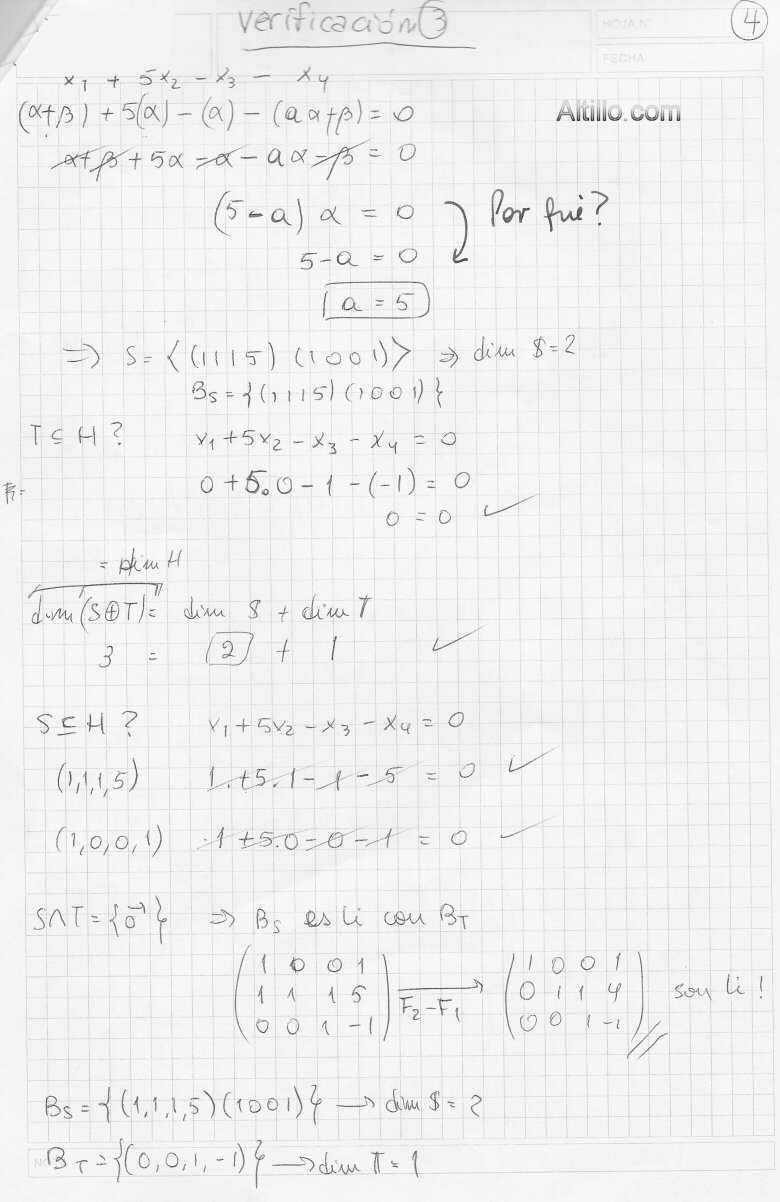 Verificación ③
④
HOJA N°
FECHA
Altillo.com
x₁ + 5x₂ - x₃ - x₄
(α+β) + 5(α) - (α) - (aα+β) = 0
α+β + 5α - α - aα - β = 0
(5-a) α = 0 Por qué?
5-a = 0
a = 5
⇒ S = ⟨(1115) (1001)⟩ ⇒ dim $ = 2
B_S = {(1115) (1001)}
T ⊆ H ? x₁ + 5x₂ - x₃ - x₄ = 0
0 + 5.0 - 1 - (-1) = 0
0 = 0 ✓
= dim H
dim (S⊕T) = dim $ + dim T
3 = 2 + 1 ✓
S ⊆ H ? x₁ + 5x₂ - x₃ - x₄ = 0
(1,1,1,5) 1 + 5.1 - 1 - 5 = 0 ✓
(1,0,0,1) 1 + 5.0 - 0 - 1 = 0 ✓
S∩T = {0⃗} ⇒ B_S es li con B_T
1 0 0 1 1 0 0 1
1 1 1 5 F₂-F₁ 0 1 1 4 son li !
0 0 1 -1 0 0 1 -1
B_S = {(1,1,1,5) (1001)} → dim $ = 2
B_T = {(0,0,1,-1)} → dim T = 1